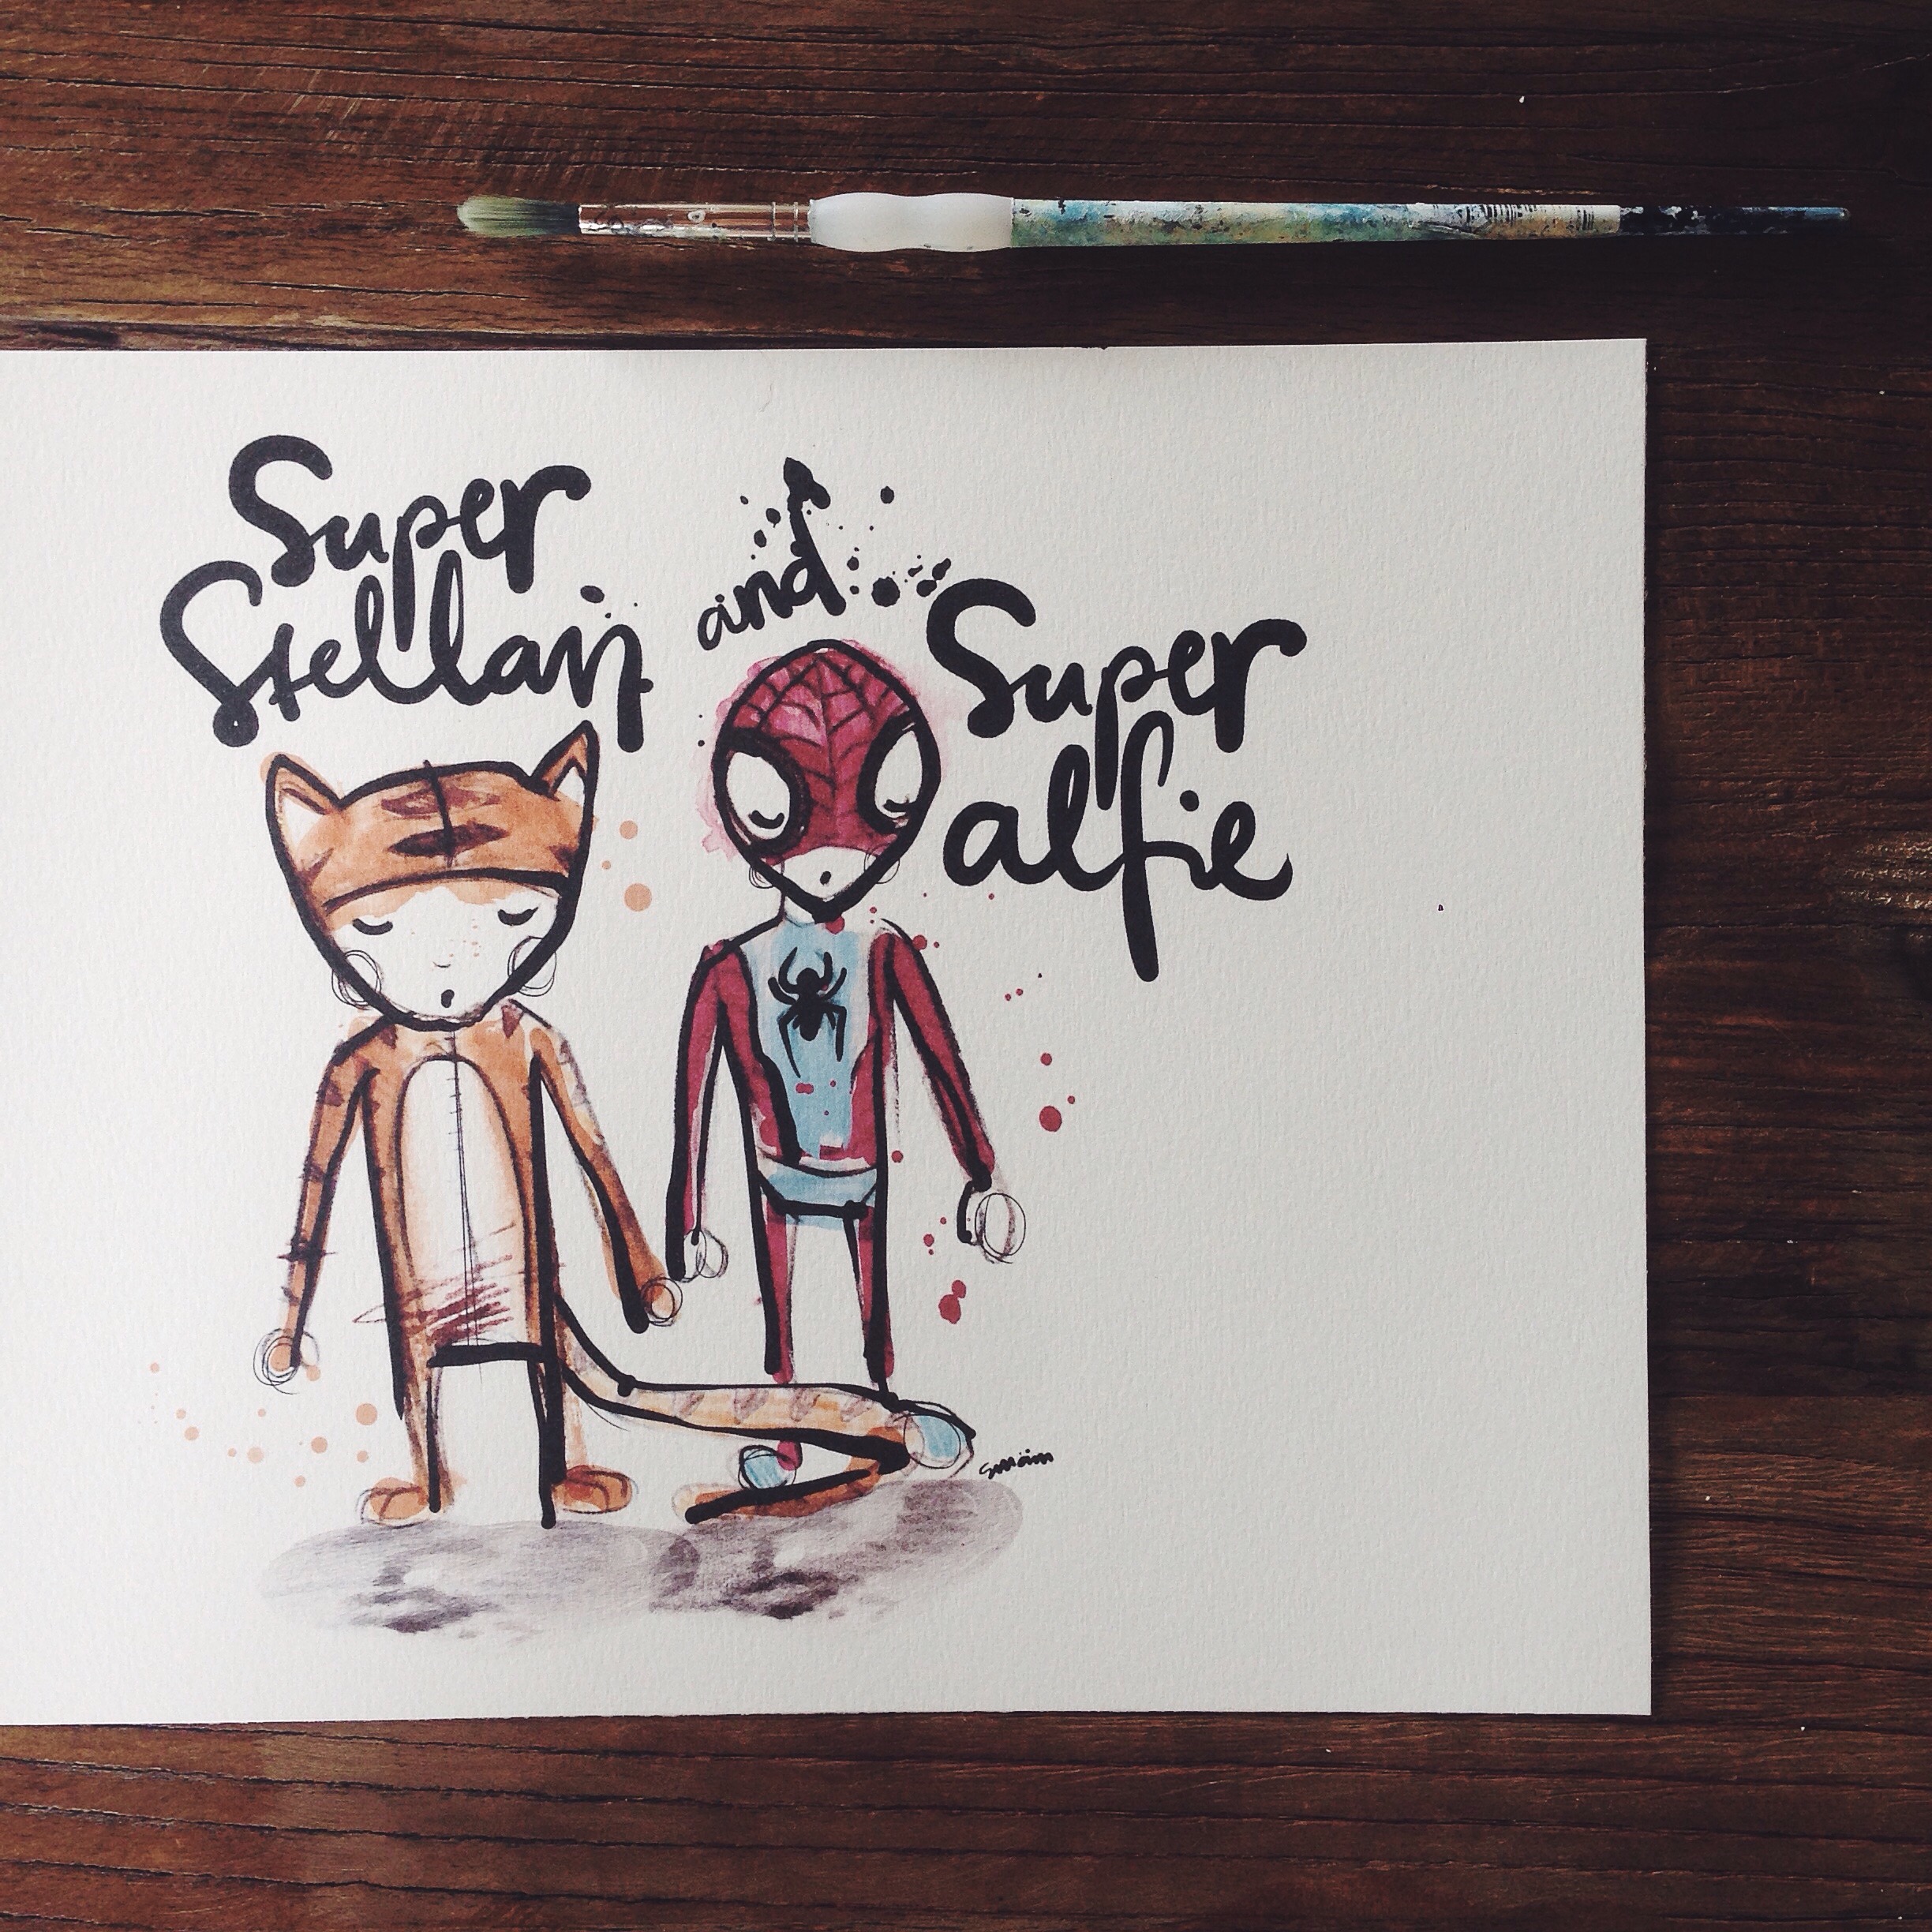 Super
Stellan
and
Super
alfie